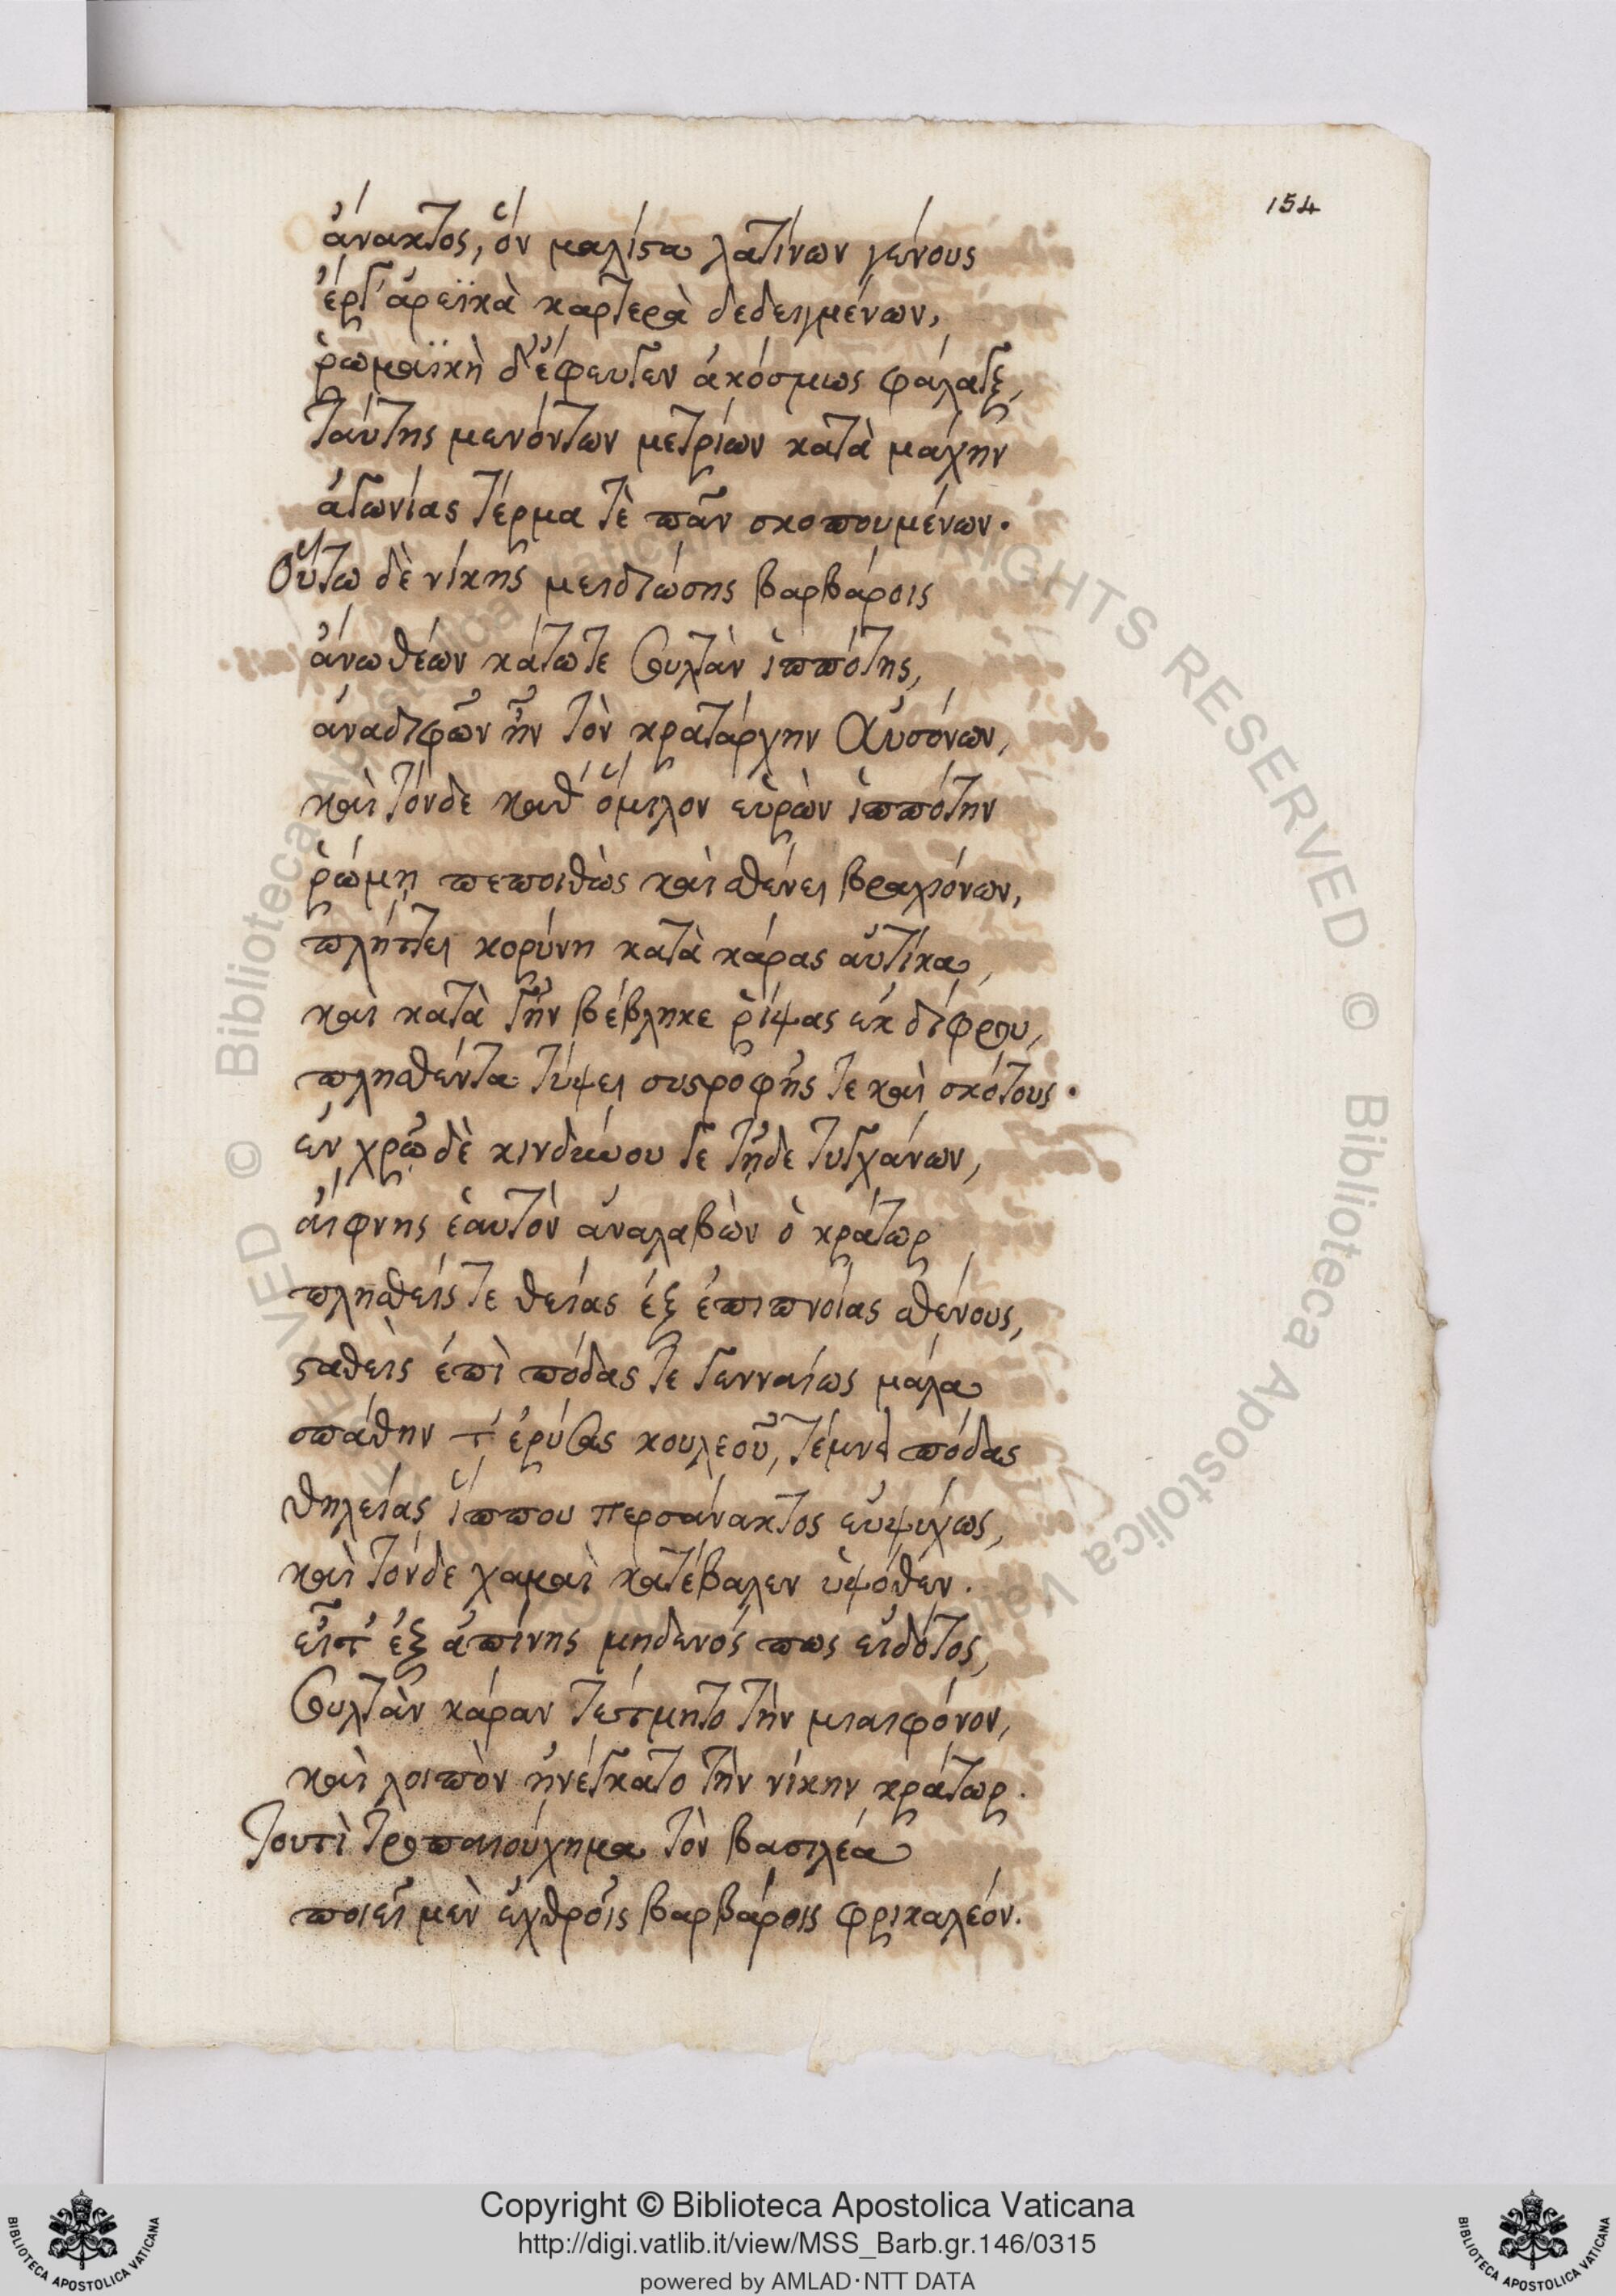 154
ἄνακτος, ὅν μαλίστα λατίνων γένους
ἔργ' ἀρεϊκὰ καρτερὰ δεδειγμένων,
ῥωμαϊκὴ δ' ἔφευγεν ἀκόσμως φάλαγξ,
ταύτης μενόντων μετρίων κατὰ μάχην
ἀγωνίας τέρμα τὲ πᾶν σκοπουμένων.
Οὕτω δὲ νίκης μειδιώσης βαρβάροις
ἄνω θέων κάτω τε σουλτὰν ἱππότης,
ἀναδιφῶν ἦν τὸν κρατάρχην Αὐσόνων,
καὶ τόνδε καθ' ὅμιλον εὑρὼν ἱππότην
ῥώμῃ πεποιθὼς καὶ σθένει βραχιόνων,
πλήττει κορύνη κατὰ κάρας αὐτίκα,
καὶ κατὰ γῆν βέβληκε ῥίψας ἐκ δίφρου,
πλησθέντα τύψει συστροφῆς τε καὶ σκότους.
ἐν χρῷ δὲ κινδύνου γε τῇδε τυγχάνων,
αἴφνης ἑαυτὸν ἀναλαβὼν ὁ κράτωρ
πλησθείς τε θείας ἐξ ἐπιπνοίας σθένους,
σταθεὶς ἐπὶ πόδας τε γενναίως μάλα
σπάθην τ' ἐρύσας κουλεοῦ, τέμνει πόδας
θηλείας ἵππου περσάνακτος εὐψύχως,
καὶ τόνδε χαμαὶ κατέβαλεν ὑψόθεν.
εἶτ' ἐξ ἀπίνης μηδενός πως εἰδότος,
σουλτὰν κάραν τέτμητο τὴν μιαιφόνον,
καὶ λοιπὸν ἠνέγκατο τὴν νίκην κράτωρ.
Τουτὶ τροπαιούχημα τὸν βασιλέα
ποιεῖ μὲν ἐχθροῖς βαρβάροις φρικαλέον.
© Biblioteca Apostolica Vaticana
RIGHTS RESERVED © Biblioteca Apostolica Vaticana
Copyright © Biblioteca Apostolica Vaticana
http://digi.vatlib.it/view/MSS_Barb.gr.146/0315
powered by AMLAD·NTT DATA
BIBLIOTECA APOSTOLICA VATICANA
BIBLIOTECA APOSTOLICA VATICANA